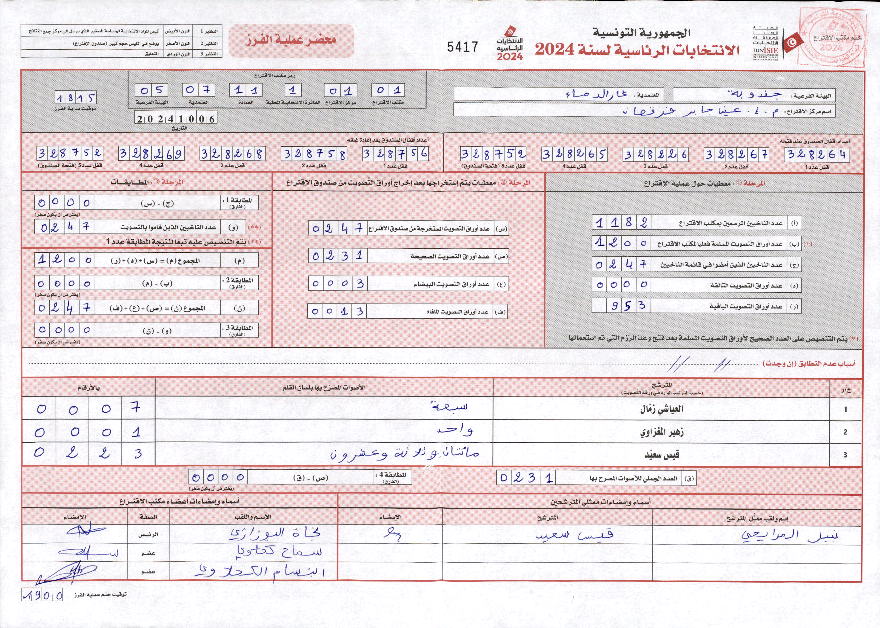 الجمهورية التونسية
الانتخابات الرئاسية لسنة 2024
الانتخابات الرئاسية 2024
5417
محضر عملية الفرز
الهيئة الفرعية: جندوبة
المعتمدية: غار الدماء
اسم مركز الاقتراع:
رمز مكتب الاقتراع
01 01 1 11 07 05
مكتب الاقتراع
مركز الاقتراع
الدائرة الانتخابية المحلية
العمادة
المعتمدية
الهيئة الفرعية
20241006
التاريخ
1815
توقيت بداية الفرز
328264 328267 328226 328265 328752
328756 328758 328268 328269 328752
المرحلة 1: معطيات حول عملية الاقتراع
(أ) عدد الناخبين المرسمين بمكتب الاقتراع 1182
(ب) عدد أوراق التصويت المسلمة فعليا لمكتب الاقتراع 1200
(ج) عدد الناخبين الذين أمضوا في قائمة الناخبين 0247
(د) عدد أوراق التصويت التالفة 0000
(و) عدد أوراق التصويت الباقية 953
(*) يتم التنصيص على العدد الصحيح لأوراق التصويت المسلمة بعد فتح وعد الرزم التي تم استعمالها
معطيات يتم إستخراجها بعد إخراج أوراق التصويت من صندوق الاقتراع
(س) عدد أوراق التصويت المستخرجة من صندوق الاقتراع 0247
(ص) عدد أوراق التصويت الصحيحة 0231
(ع) عدد أوراق التصويت البيضاء 0003
(ف) عدد أوراق التصويت الملغاة 0013
المطابقات
المطابقة 1: (ج) - (س) 0000
عدد الناخبين الذين قاموا بالتصويت 0247
(**) يتم التنصيص عليه تبعا لنتيجة المطابقة عدد 1
(م) المجموع 1200
المطابقة 2: (ب) - (م) 0000
(ن) المجموع (ن) = (ص) + (ع) + (ف) 0247
المطابقة 3: 0000
أسباب عدم التطابق (إن وجدت)
ع/ر المترشح الأصوات المصرح بها بلسان القلم بالأرقام
1 العياشي زمال سبعة 0007
2 زهير المغزاوي واحد 0001
3 قيس سعيّد مائتان وثلاثة وعشرون 0223
(ق) العدد الجملي للأصوات المصرح بها 0231
المطابقة 4: (ص) - (ق) 0000
أسماء وإمضاءات ممثلي المترشحين
أسماء وإمضاءات أعضاء مكتب الاقتراع
اسم ولقب ممثل المترشح المترشح الإمضاء الإسم واللقب الصفة الإمضاء
نبيل المرايحي قيس سعيد
الرئيس
سماح عضو
عضو
توقيت ختم عملية الفرز 1900